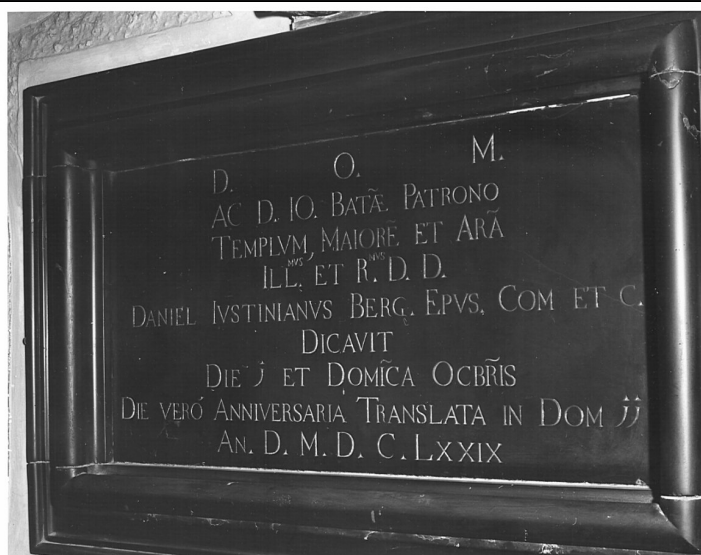 D. O. M.
AC D. IO. BATÃÆ. PATRONO
TEMPLVM, MAIORẼ ET ARÃ
ILL.MVS ET R.NVS D. D.
DANIEL IVSTINIANVS BERG. EPVS, COM ET C.
DICAVIT
DIE j ET DOMĨCA OCBR̃IS
DIE VERÓ ANNIVERSARIA TRANSLATA IN DOM jj
AN. D. M. D. C. LXXIX